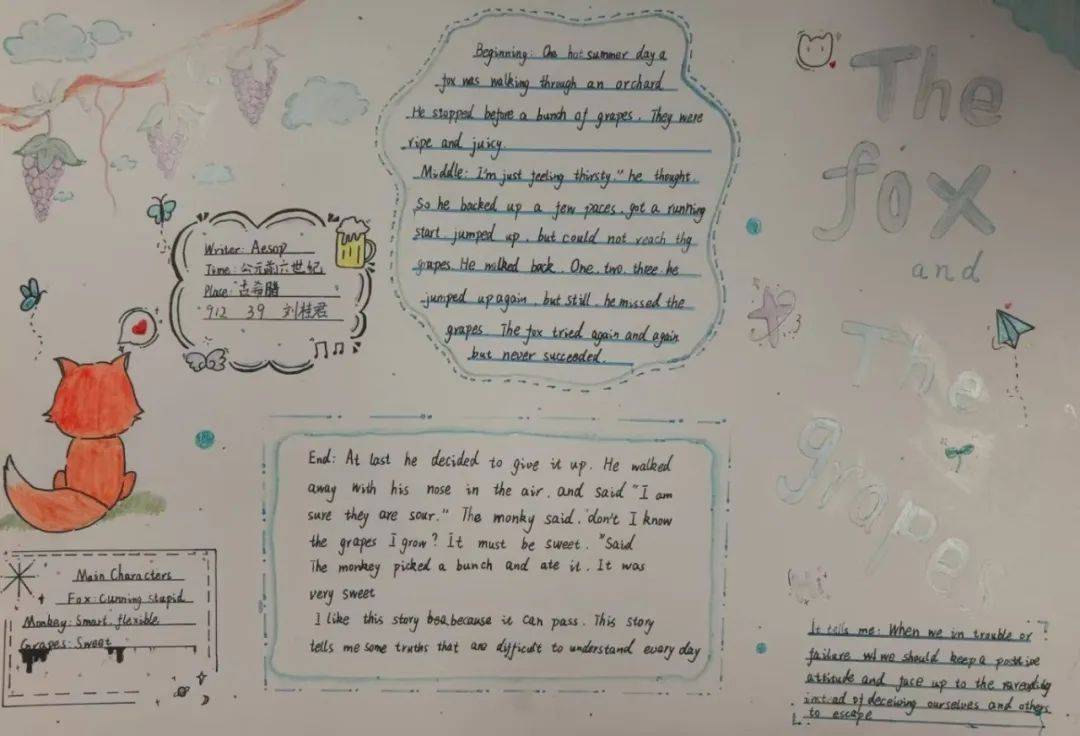 The
fox
and
The
grapes
Writer: Aesop
Time: 公元前六世纪
Place: 古希腊
912 39 刘桂君
Beginning: One hot summer day a
fox was walking through an orchard
He stopped before a bunch of grapes. They were
ripe and juicy.
Middle: I'm just feeling thirsty." he thought.
So he backed up a few paces, got a running
start, jumped up, but could not reach the
grapes. He walked back. One, two, three, he
jumped up again, but still, he missed the
grapes. The fox tried again and again
but never succeeded.
End: At last he decided to give it up. He walked
away with his nose in the air, and said "I am
sure they are sour." The monky said, "don't I know
the grapes I grow? It must be sweet. "Said
The monkey picked a bunch and ate it. It was
very sweet
I like this story because it can pass. This story
tells me some truths that are difficult to understand every day
Main Characters
Fox: Cunning stupid
Monkey: Smart, flexible
Grapes: Sweet
It tells me: When we in trouble or
failure we should keep a positive
attitude and face up to the
instead of deceiving ourselves and others
to escape